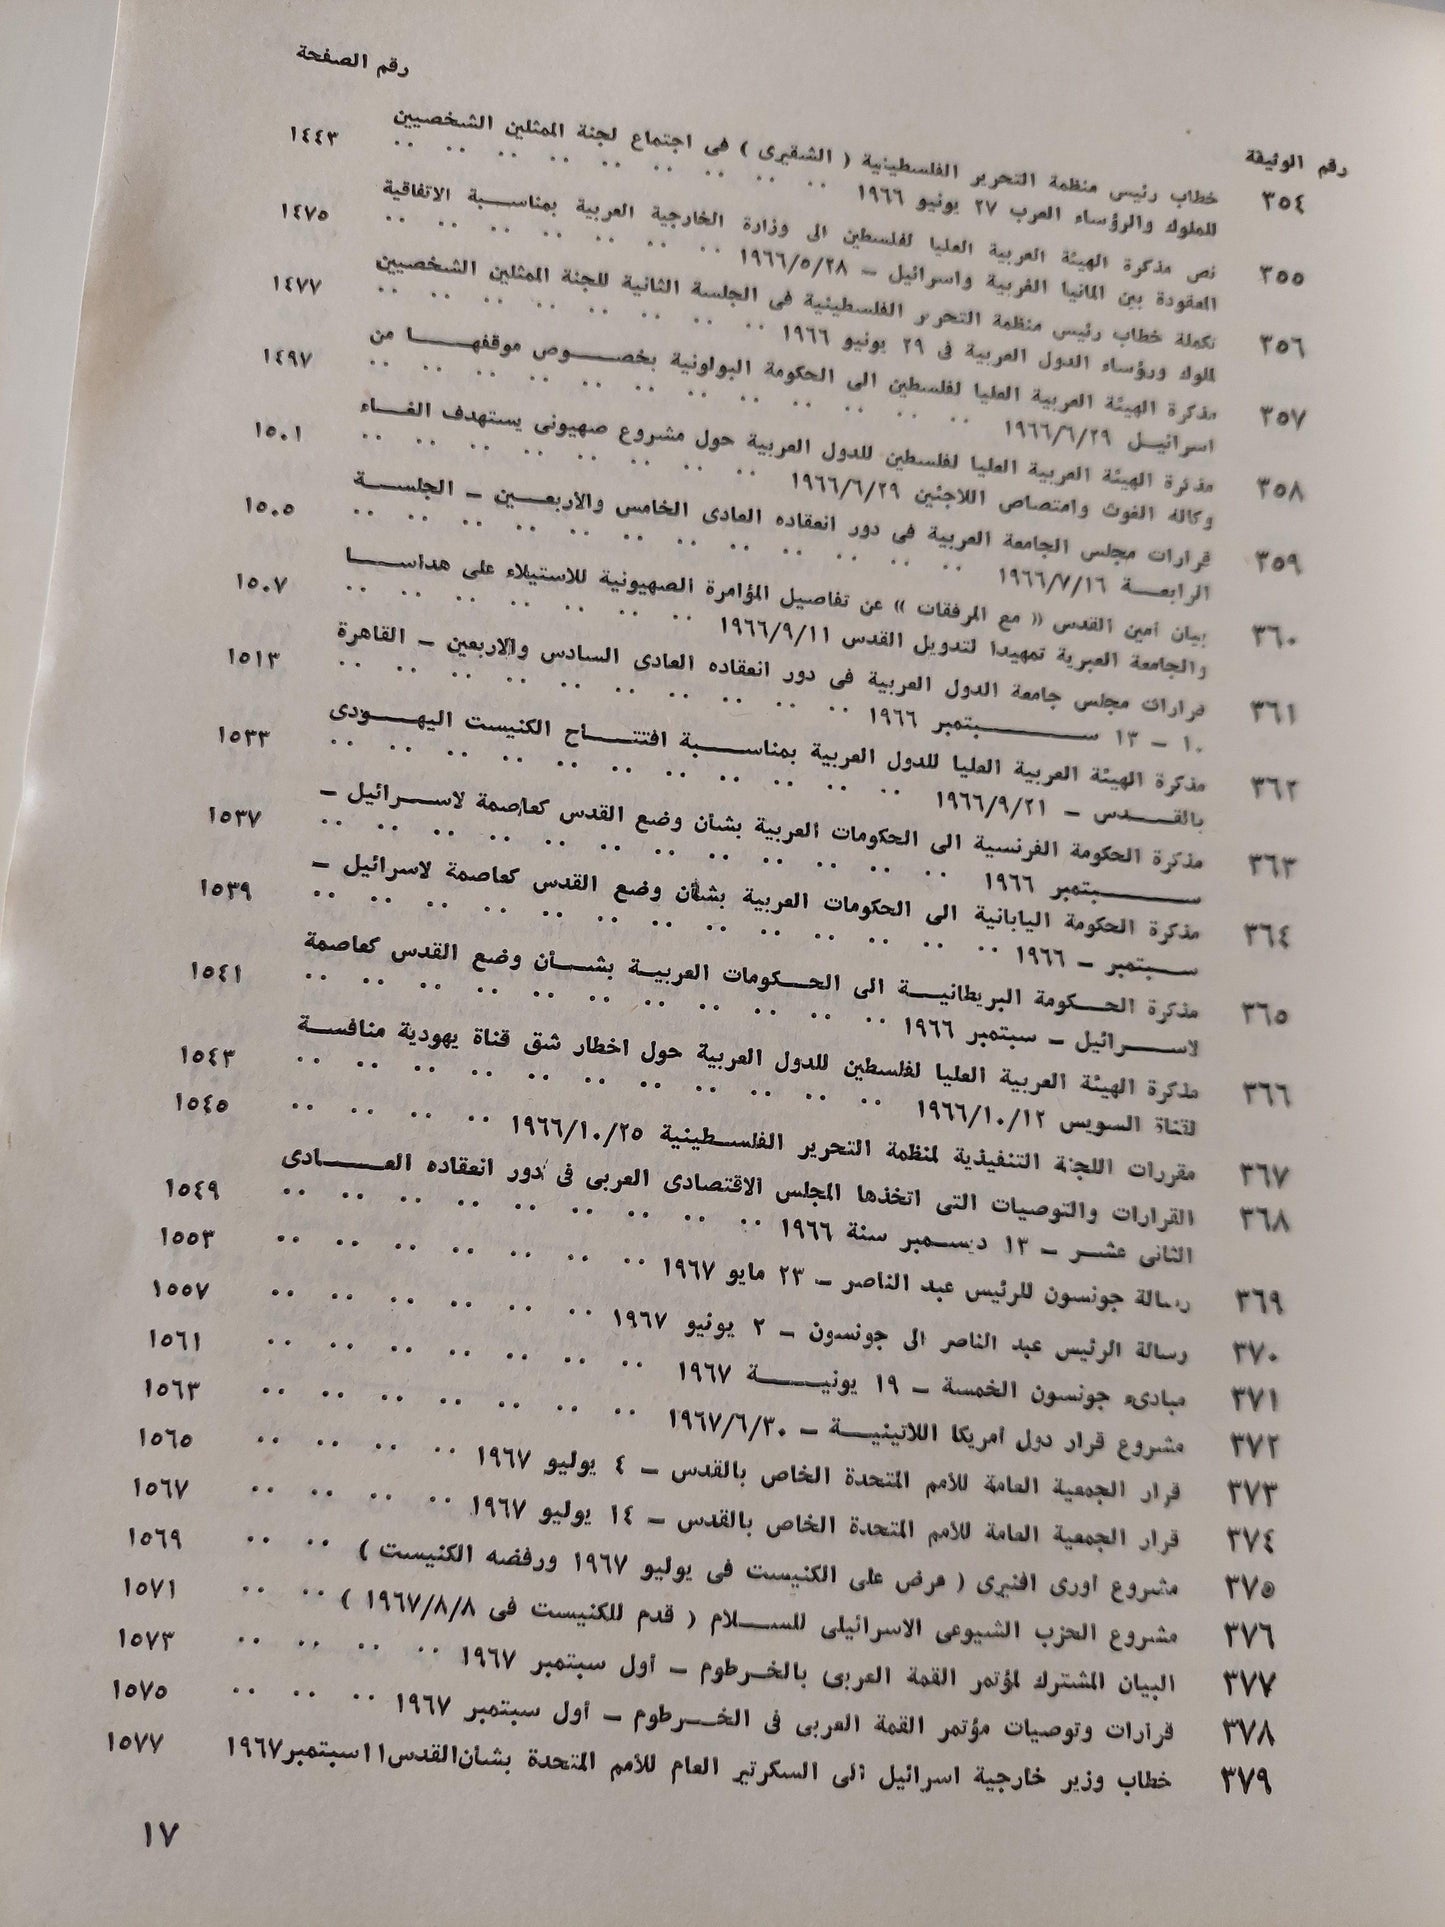 رقم الصفحة
رقم الوثيقة
٣٥٤ خطاب رئيس منظمة التحرير الفلسطينية ( الشقيرى ) فى اجتماع لجنة الممثلين الشخصيين
للملوك والرؤساء العرب ٢٧ يونيو ١٩٦٦ ١٤٤٣
٣٥٥ نص مذكرة الهيئة العربية العليا لفلسطين الى وزارة الخارجية العربية بمناسبة الاتفاقية
المعقودة بين المانيا الغربية واسرائيل — ١٩٦٦/٥/٢٨ ١٤٧٥
٣٥٦ تكملة خطاب رئيس منظمة التحرير الفلسطينية فى الجلسة الثانية للجنة الممثلين الشخصيين
لملوك ورؤساء الدول العربية فى ٢٩ يونيو ١٩٦٦ ١٤٧٧
٣٥٧ مذكرة الهيئة العربية العليا لفلسطين الى الحكومة البولونية بخصوص موقفها من
اسرائيل ١٩٦٦/٦/٢٩ ١٤٩٧
٣٥٨ مذكرة الهيئة العربية العليا لفلسطين للدول العربية حول مشروع صهيونى يستهدف الغاء
وكالة الغوث وامتصاص اللاجئين ١٩٦٦/٦/٢٩ ١٥٠١
٣٥٩ قرارات مجلس الجامعة العربية فى دور انعقاده العادى الخامس والأربعين — الجلسة
الرابعة ١٩٦٦/٧/١٦ ١٥٠٥
٣٦٠ بيان أمين القدس « مع المرفقات » عن تفاصيل المؤامرة الصهيونية للاستيلاء على هداسا
والجامعة العبرية تمهيدا لتدويل القدس ١٩٦٦/٩/١١ ١٥٠٧
٣٦١ قرارات مجلس جامعة الدول العربية فى دور انعقاده العادى السادس والاربعين — القاهرة
١٠ — ١٣ سبتمبر ١٩٦٦ ١٥١٣
٣٦٢ مذكرة الهيئة العربية العليا للدول العربية بمناسبة افتتاح الكنيست اليهودى
بالقدس — ١٩٦٦/٩/٢١ ١٥٣٣
٣٦٣ مذكرة الحكومة الفرنسية الى الحكومات العربية بشأن وضع القدس كعاصمة لاسرائيل —
سبتمبر ١٩٦٦ ١٥٣٧
٣٦٤ مذكرة الحكومة اليابانية الى الحكومات العربية بشأن وضع القدس كعاصمة لاسرائيل —
سبتمبر — ١٩٦٦ ١٥٣٩
٣٦٥ مذكرة الحكومة البريطانية الى الحكومات العربية بشأن وضع القدس كعاصمة
لاسرائيل — سبتمبر ١٩٦٦ ١٥٤١
٣٦٦ مذكرة الهيئة العربية العليا لفلسطين للدول العربية حول اخطار شق قناة يهودية منافسة
لقناة السويس ١٩٦٦/١٠/١٢ ١٥٤٣
٣٦٧ مقررات اللجنة التنفيذية لمنظمة التحرير الفلسطينية ١٩٦٦/١٠/٢٥ ١٥٤٥
٣٦٨ القرارات والتوصيات التى اتخذها المجلس الاقتصادى العربى فى دور انعقاده العادى
الثانى عشر — ١٣ ديسمبر سنة ١٩٦٦ ١٥٤٩
٣٦٩ رسالة جونسون للرئيس عبد الناصر — ٢٣ مايو ١٩٦٧ ١٥٥٣
٣٧٠ رسالة الرئيس عبد الناصر الى جونسون — ٢ يونيو ١٩٦٧ ١٥٥٧
٣٧١ مبادىء جونسون الخمسة — ١٩ يونية ١٩٦٧ ١٥٦١
٣٧٢ مشروع قرار دول أمريكا اللاتينية — ١٩٦٧/٦/٣٠ ١٥٦٣
٣٧٣ قرار الجمعية العامة للأمم المتحدة الخاص بالقدس — ٤ يوليو ١٩٦٧ ١٥٦٥
٣٧٤ قرار الجمعية العامة للأمم المتحدة الخاص بالقدس — ١٤ يوليو ١٩٦٧ ١٥٦٧
٣٧٥ مشروع أورى افنيرى ( عرض على الكنيست فى يوليو ١٩٦٧ ورفضه الكنيست ) ١٥٦٩
٣٧٦ مشروع الحزب الشيوعى الاسرائيلى للسلام ( قدم للكنيست فى ١٩٦٧/٨/٨ ) ١٥٧١
٣٧٧ البيان المشترك لمؤتمر القمة العربى بالخرطوم — أول سبتمبر ١٩٦٧ ١٥٧٣
٣٧٨ قرارات وتوصيات مؤتمر القمة العربى فى الخرطوم — أول سبتمبر ١٩٦٧ ١٥٧٥
٣٧٩ خطاب وزير خارجية اسرائيل الى السكرتير العام للأمم المتحدة بشأن القدس ١١ سبتمبر ١٩٦٧ ١٥٧٧
١٧